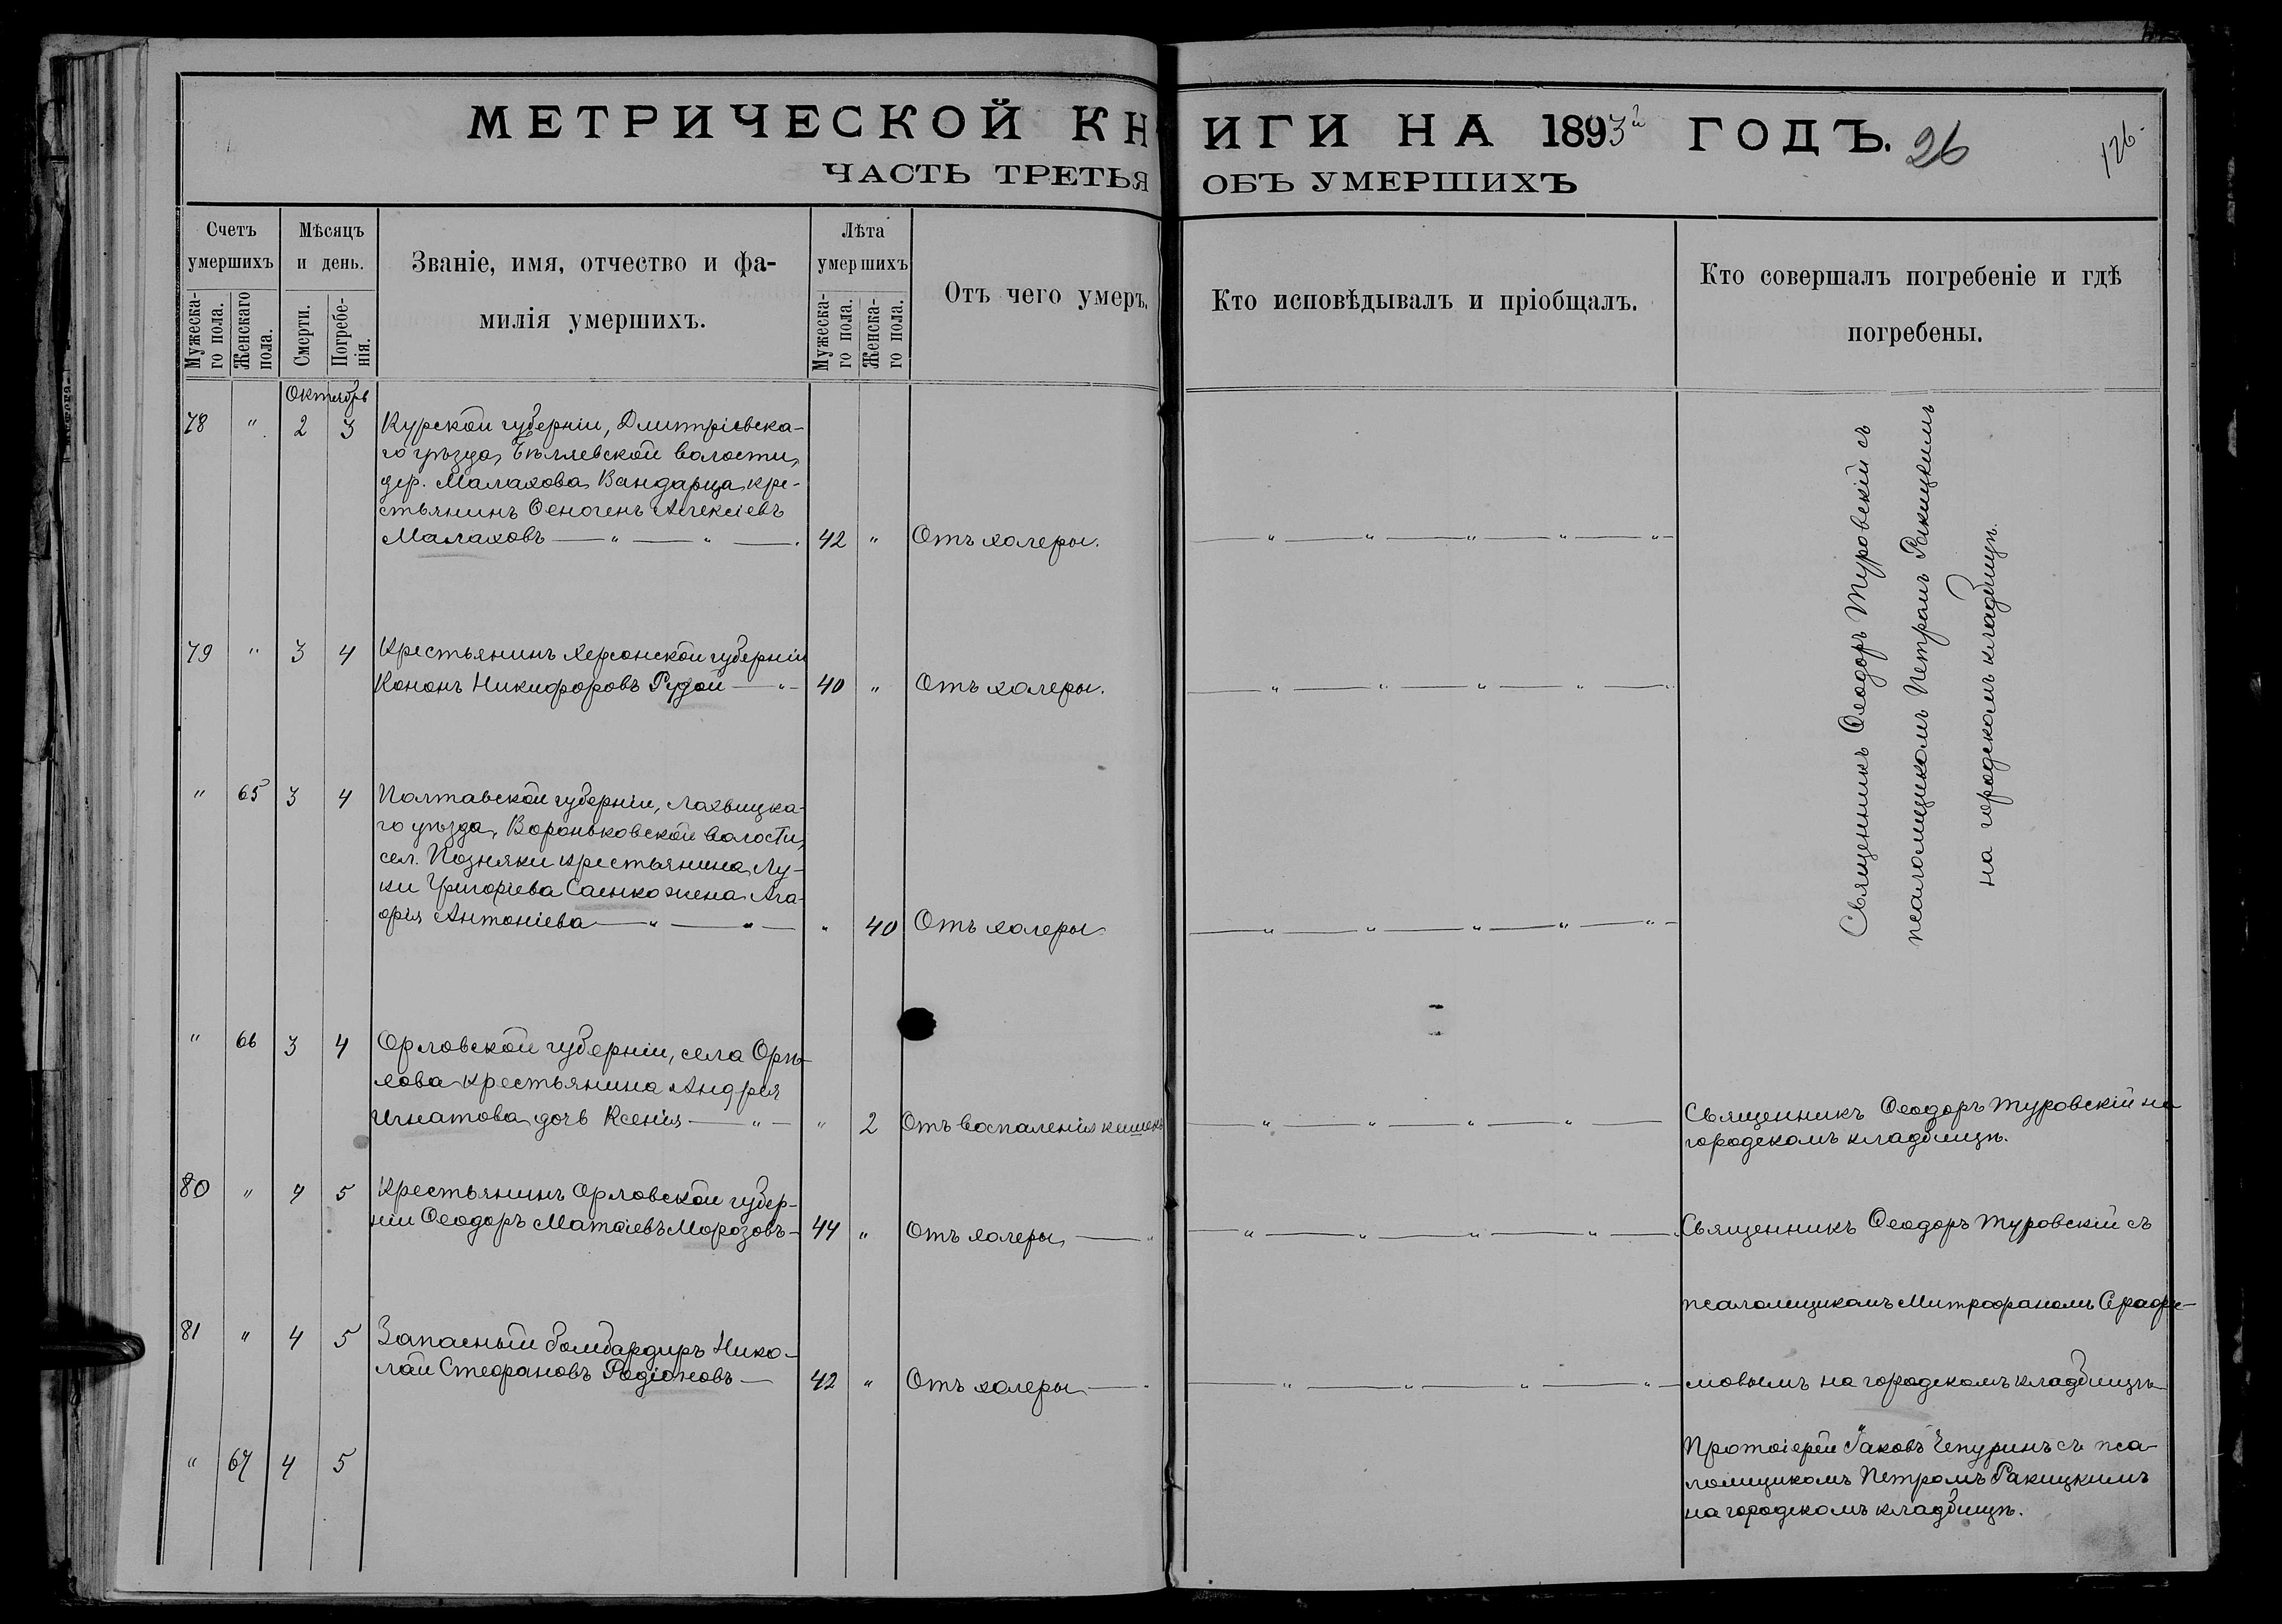 МЕТРИЧЕСКОЙ КНИГИ НА 1893й ГОДЪ. 26
126.
ЧАСТЬ ТРЕТЬЯ ОБЪ УМЕРШИХЪ
Счетъ умершихъ
Мужеска-го пола.
Женскаго пола.
Мѣсяцъ и день.
Смерти.
Погребе-нія.
Званіе, имя, отчество и фа-
милія умершихъ.
Лѣта умершихъ
Мужеска-го пола.
Женска-го пола.
Отъ чего умеръ.
Кто исповѣдывалъ и пріобщалъ.
Кто совершалъ погребеніе и гдѣ
погребены.
Октябрь
78 " 2 3 Курской губерніи, Дмитріевска-
го уѣзда, Бѣляевской волости,
дер. Малахова Вандарца кре-
стьянинъ Ѳеногенъ Алексіевъ
Малаховъ — " — " — 42 " Отъ холеры. — " — " — " — " — " —
79 " 3 4 Крестьянинъ Херсонской губерніи
Кононъ Никифоровъ Рудой — " — 40 " Отъ холеры. — " — " — " — " —
Священникъ Ѳеодоръ Туровскій съ
псаломщикомъ Петромъ Ракицкимъ
на городскомъ кладбищѣ.
" 65 3 4 Полтавской губерніи, Лохвицка-
го уѣзда, Вороньковской волости,
сел. Позняки крестьянина Лу-
ки Григоріева Саенко жена Ага-
фія Антоніева — " — " — " 40 Отъ холеры — " — " — " — " — " —
" 66 3 4 Орловской губерніи, села Орѣ-
хова крестьянина Андрея
Игнатова дочь Ксенія — " — " 2 Отъ воспаленія кишекъ — " — " — " — " —
Священникъ Ѳеодоръ Туровскій на
городскомъ кладбищѣ.
80 " 4 5 Крестьянинъ Орловской губер-
ніи Ѳеодоръ Матѳіевъ Морозовъ — 44 " Отъ холеры — " — " — " — " — " —
Священникъ Ѳеодоръ Туровскій съ
псаломщикомъ Митрофаномъ Серафи-
мовымъ на городскомъ кладбищѣ
81 " 4 5 Запасный бомбардиръ Нико-
лай Стефановъ Родіоновъ — 42 " Отъ холеры — " — " — " — " — " —
" 67 4 5
Протоіерей Іаковъ Чепуринъ съ пса-
ломщикомъ Петромъ Ракицкимъ
на городскомъ кладбищѣ.